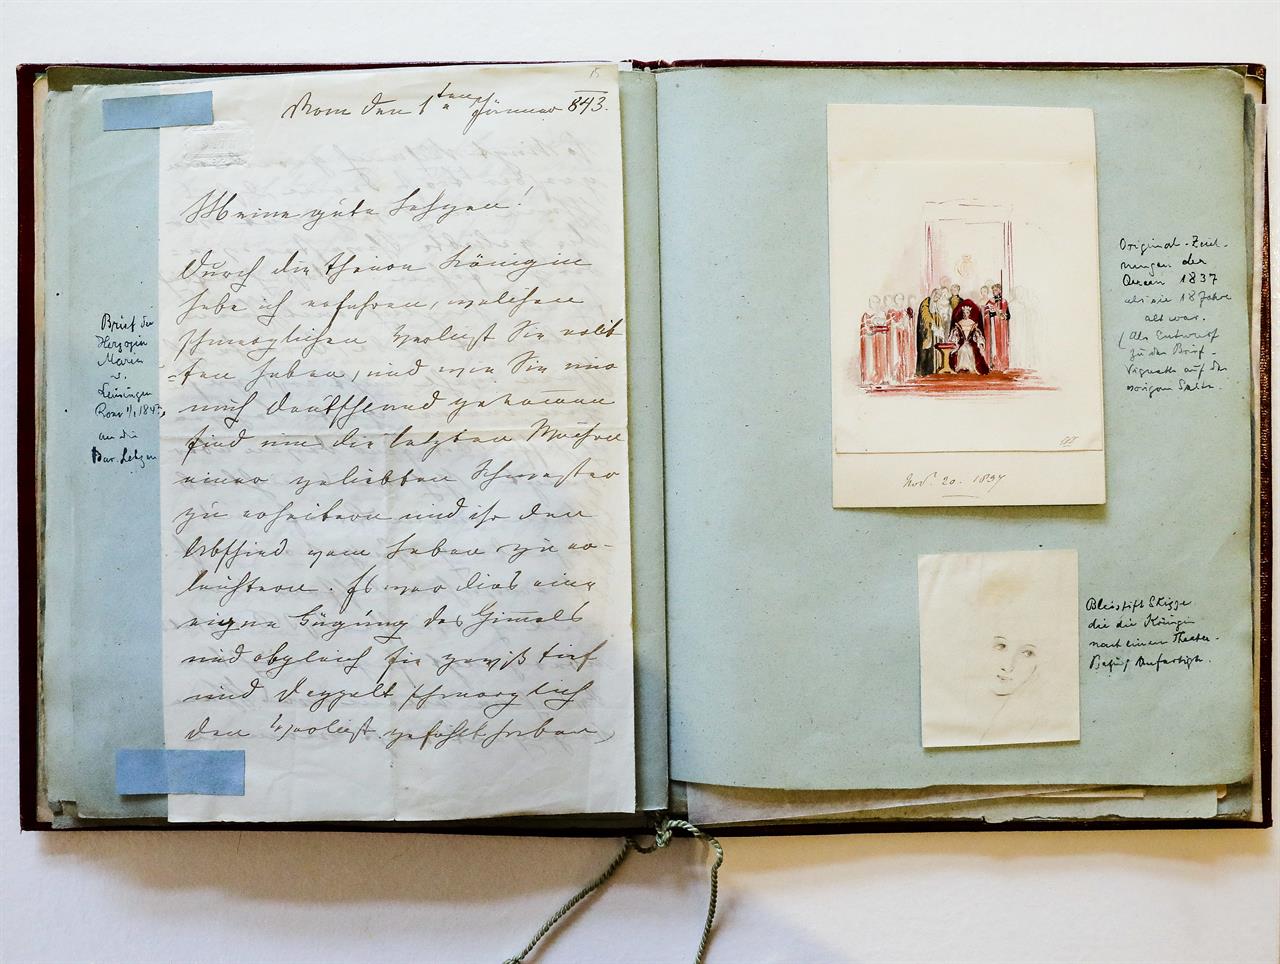 15
Rom den 1ten Jänner 843.
Meine gute Lehzen!
Durch die theure Königin
habe ich erfahren, welchen
schmerzlichen Verlust Sie erlit-
ten haben, und wie Sie nur
noch gekommen
sind um die letzten Wochen
einer geliebten Schwester
zu erheitern und ihr den
Abschied vom Leben zu er-
leichtern. Es war dies eine
eigne Fügung des Himmels
und obgleich Sie gewiß tief
und doppelt schmerzlich
den Verlust gefühlt haben,
Brief der
Herzogin
Marie
v.
Leiningen
Rom 1/1 1843,
an die
Bar. Lehzen
Original-Zeich-
nungen der
Queen 1837
als sie 18 Jahre
alt war.
(Als Entwurf
zu der Brief-
Vignette auf der
vorigen Seite.
Nov. 20. 1837
Bleistift Skizze
die die Königin
nach einem Theater-
Besuch anfertigte.